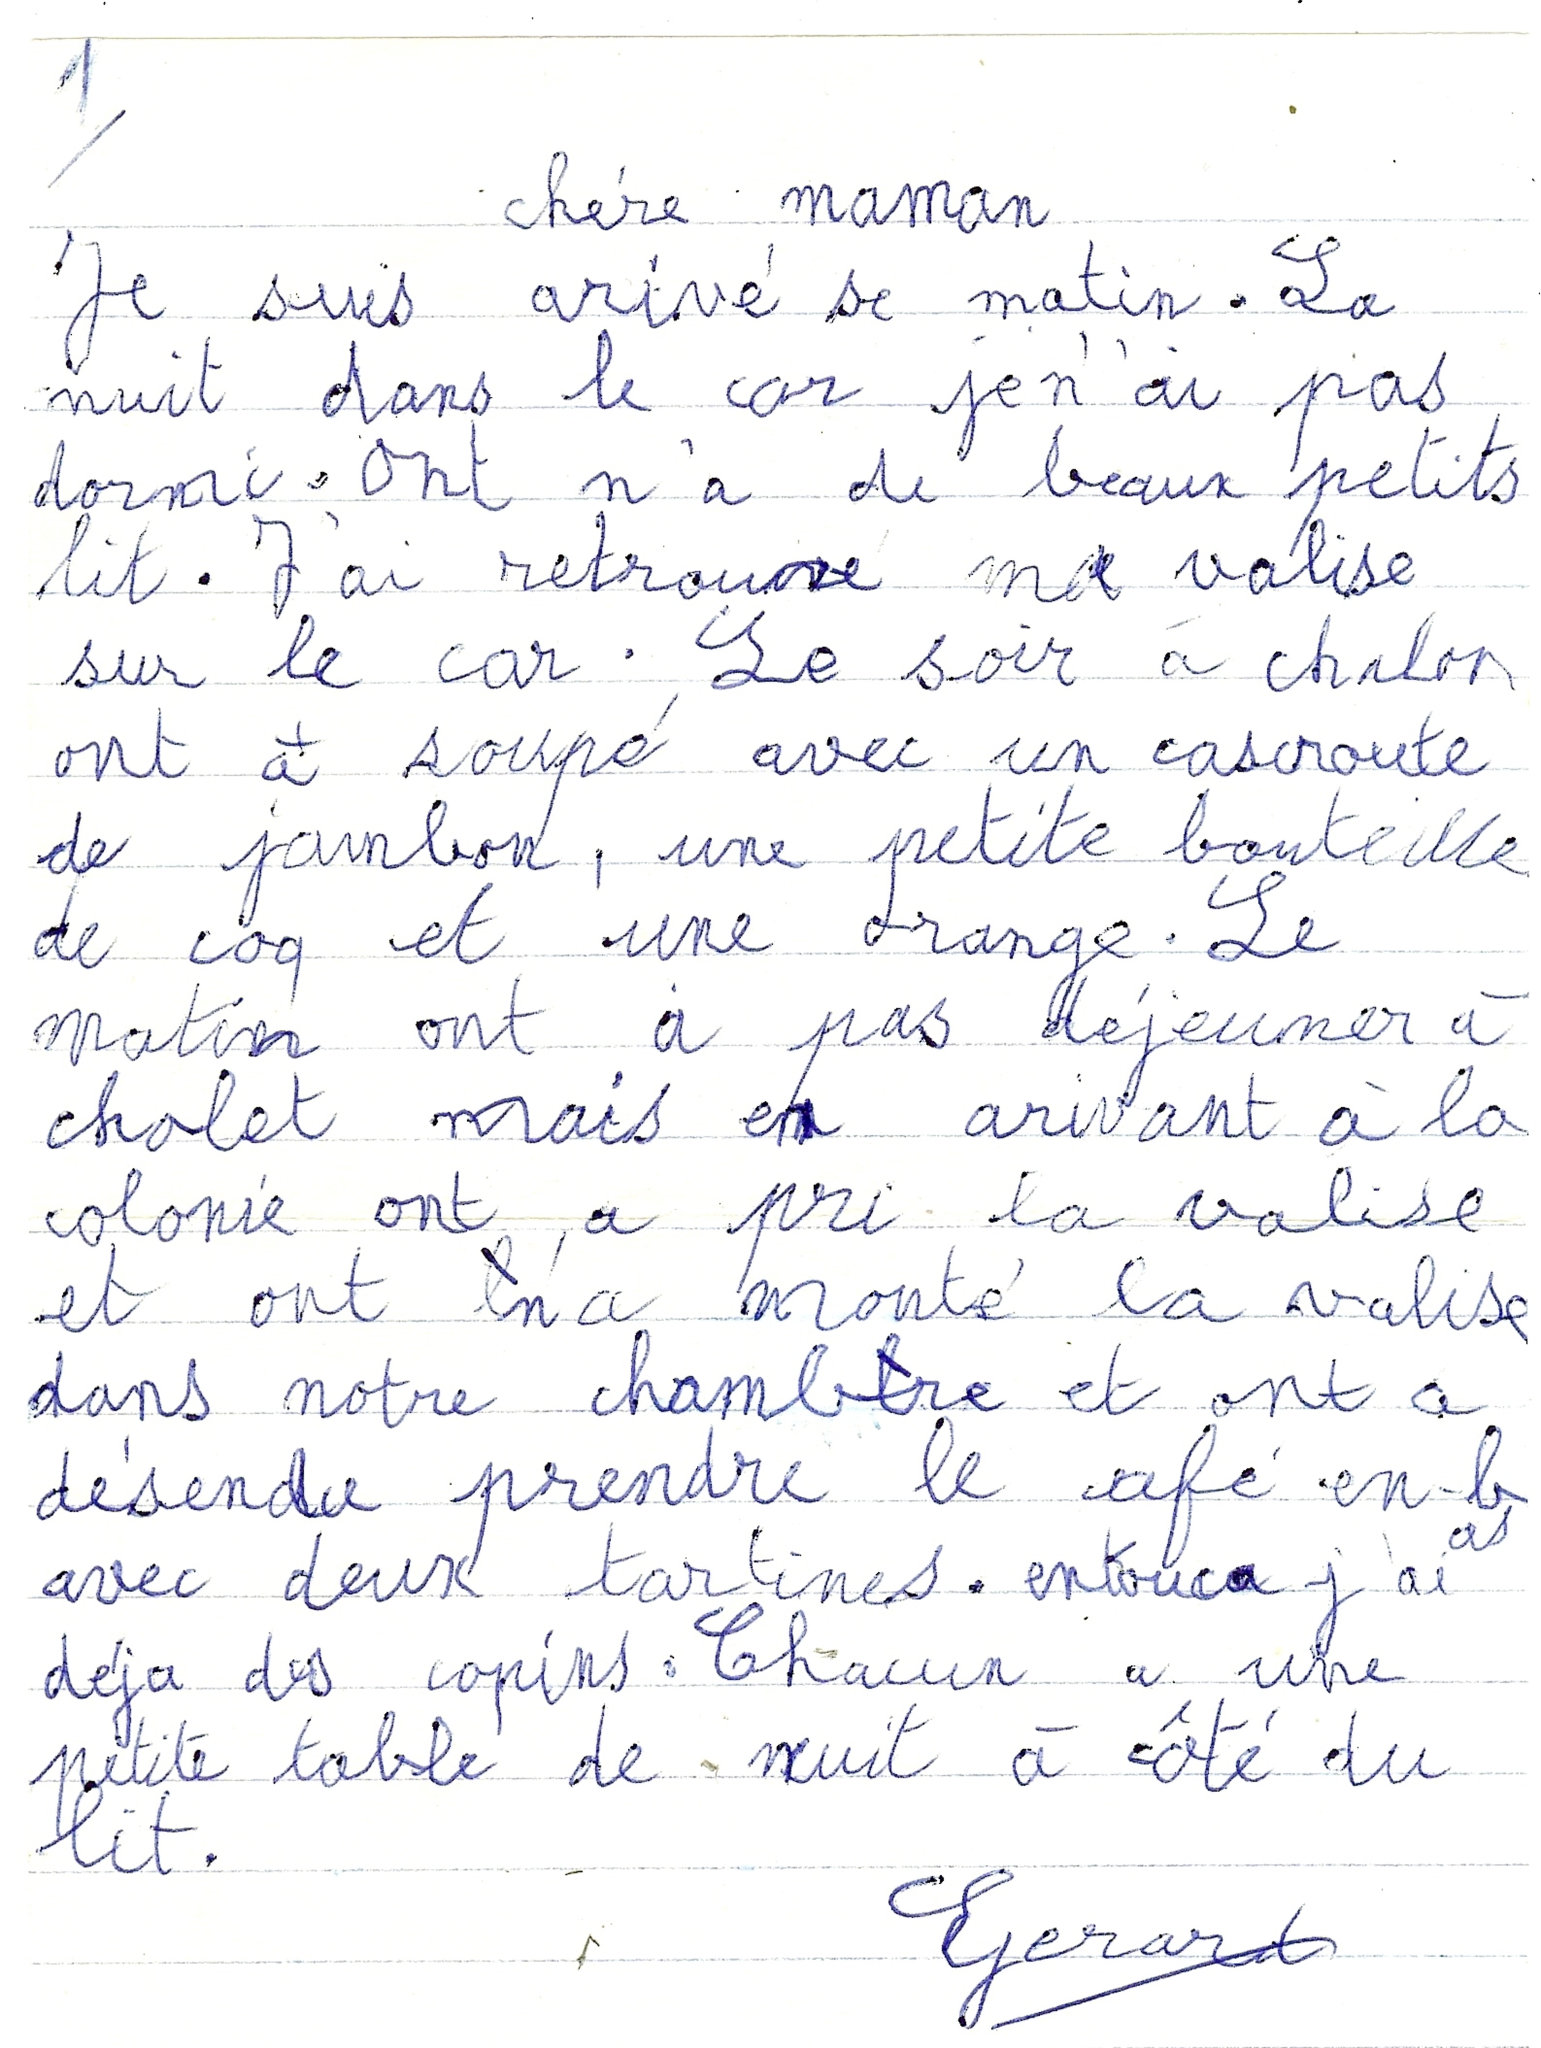 1/
chére maman
Je suis arivé se matin. La
nuit dans le car je n'ai pas
dormi. Ont n'a de beaux petits
lit. J'ai retrouvé ma valise
sur le car. Le soir à chalon
ont à soupé avec un cascroute
de jambon, une petite bouteille
de coq et une orange. Le
matin ont à pas déjeuner à
cholet mais en arivant à la
colonie ont a pri la valise
et ont n'a monté la valise
dans notre chambre et ont a
désendue prendre le café en-b
as
avec deux tartines. entouca j'ai
déja des copins. Chacun a une
petite table de nuit à côté du
lit.
Gerard